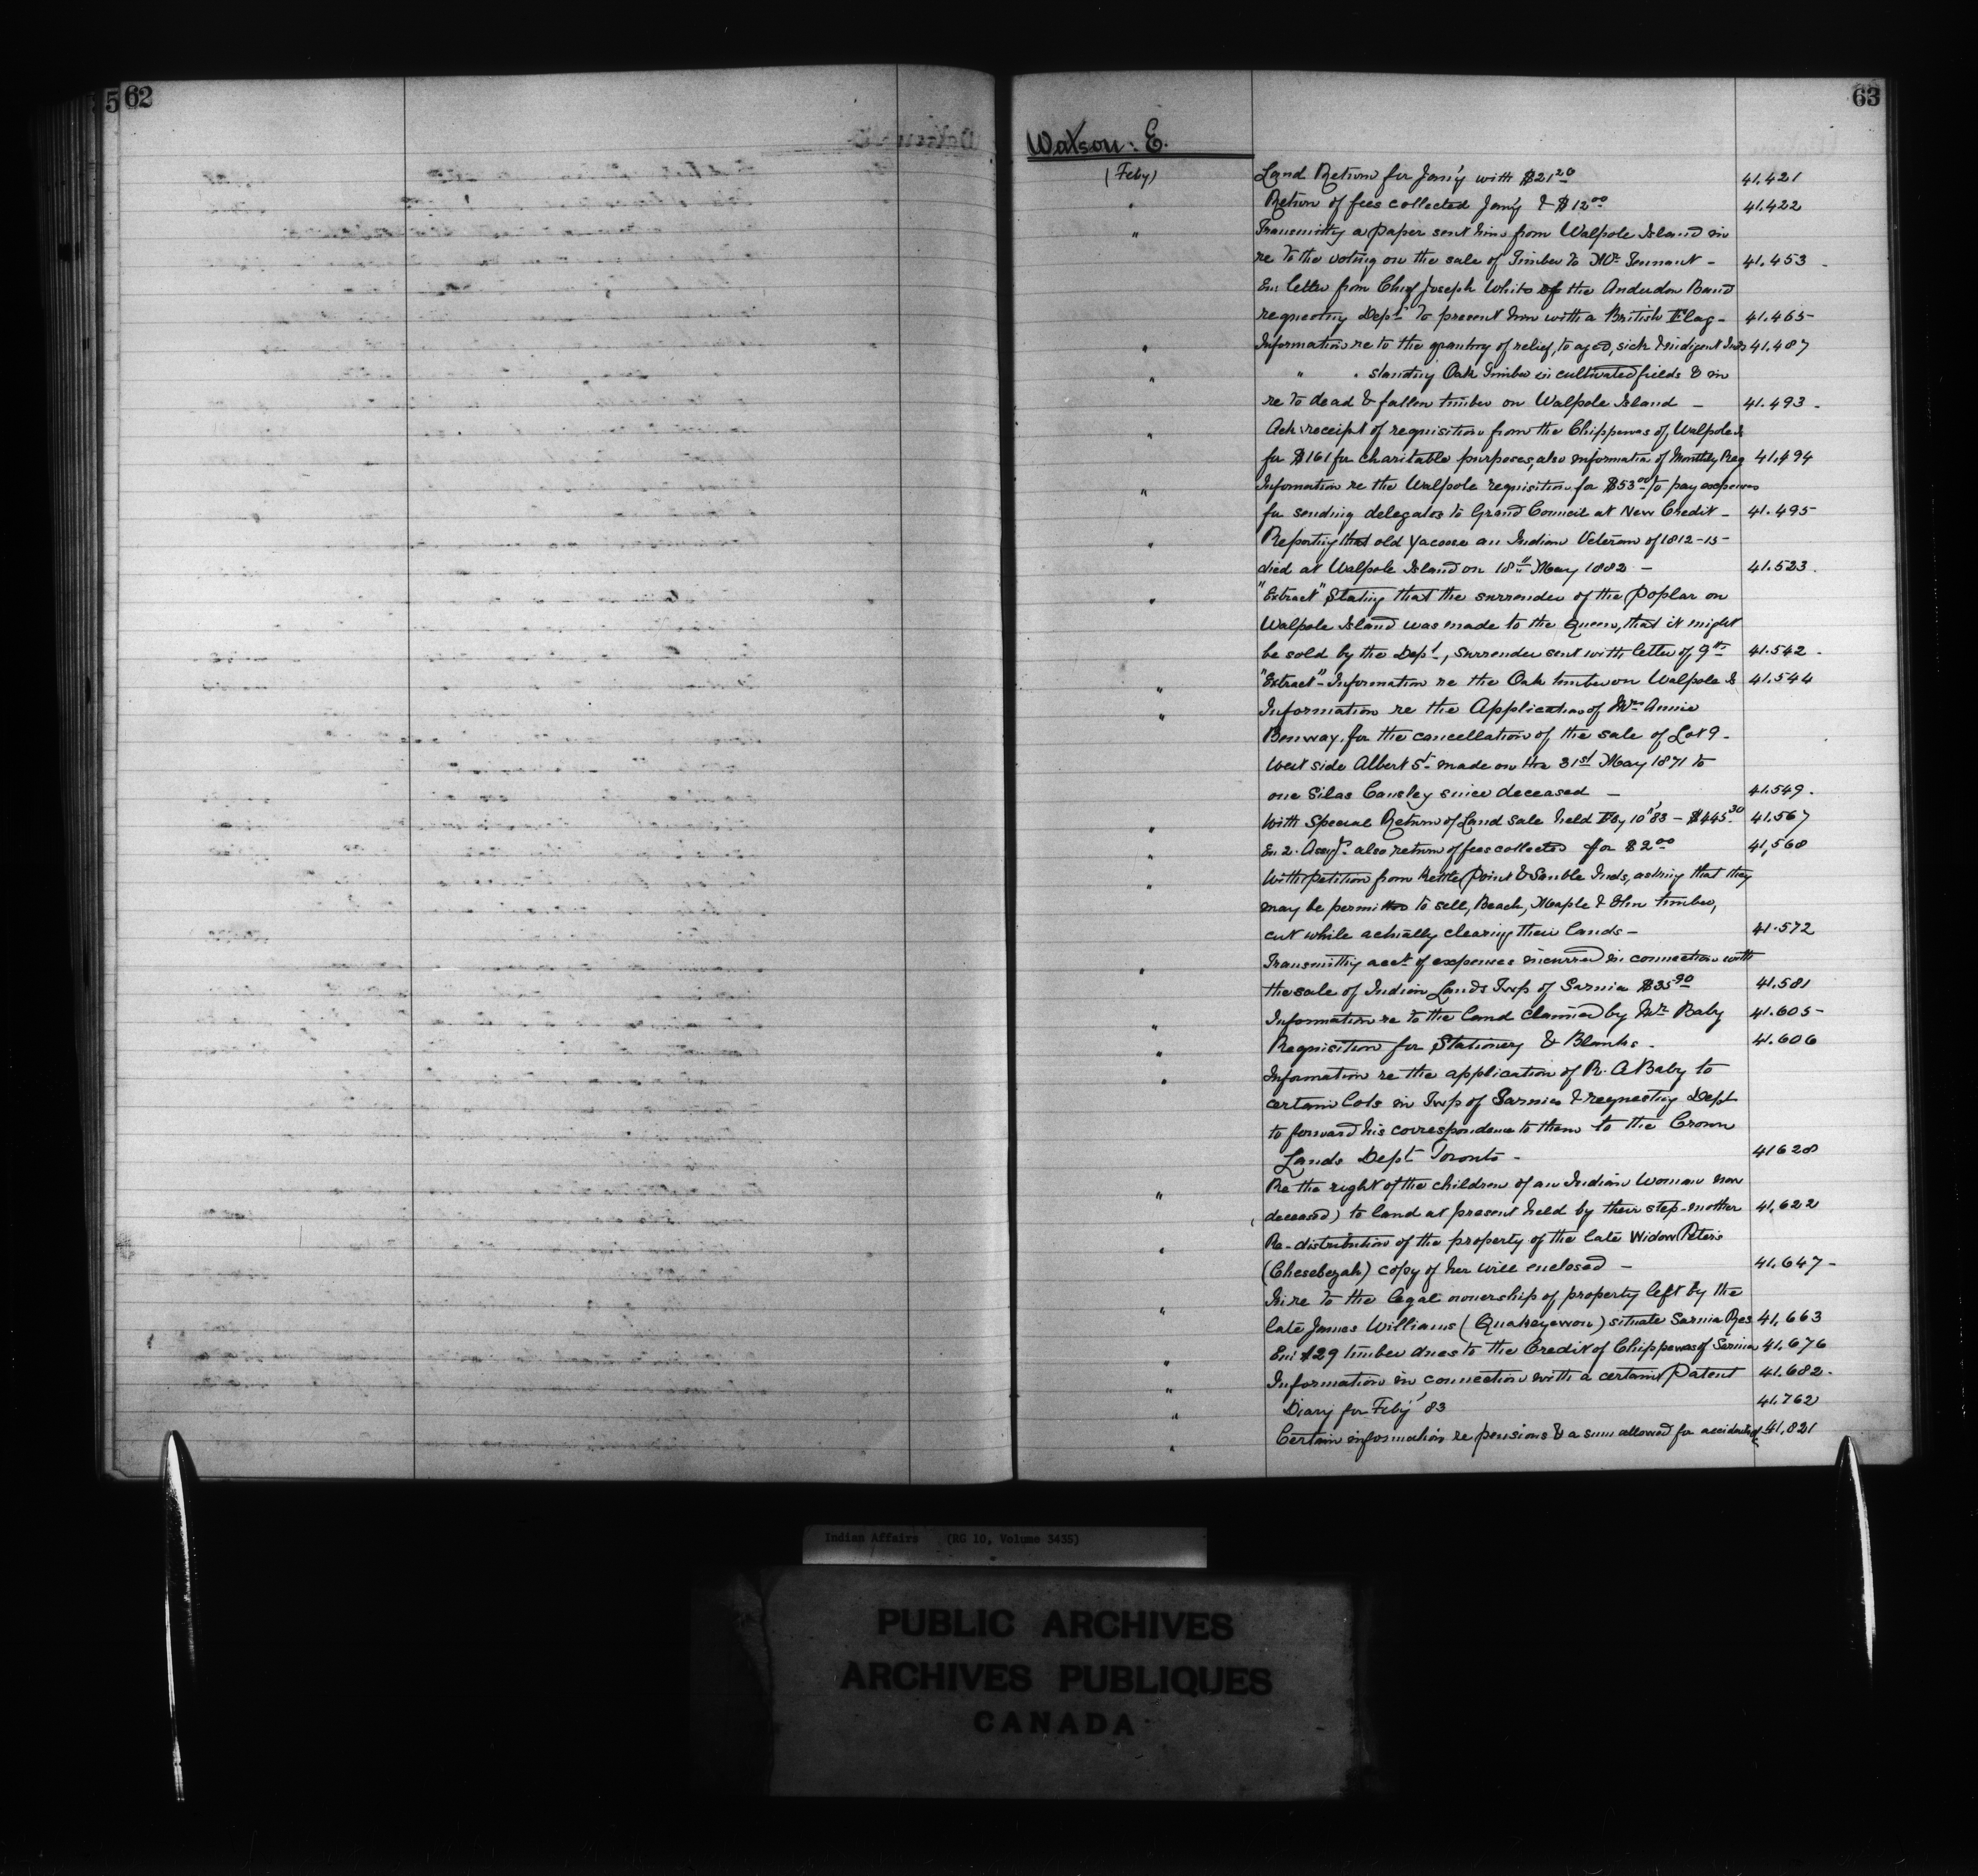 62
63
Watson: E.
(Feby) Land Return for Jan'y with $21 20 41.421
" Return of fees collected Jan'y & $12 00 41.422
" Transmittg a paper sent him from Walpole Island in
re to the voting on the sale of Timber to Mr Tennant - 41.453
En: letter from Chief Joseph White of the Anderdon Band
requesting Dept to present him with a British Flag - 41.465
" Information re to the granting of relief, to aged, sick & indigent Inds 41.487
" " " standing Oak Timber in cultivated fields & in
re to dead & fallen timber on Walpole Island - 41.493
" Ack: receipt of requisition from the Chippewas of Walpole Is
for $161 for charitable purposes, also information of Monthly Req 41.494
" Infomation re the Walpole requisition for $53 00 to pay expenses
for sending delegates to Grand Council at New Credit - 41.495
" Reporting that old Yacoose an Indian Veteran of 1812-15-
died at Walpole Island on 18th May 1882 - 41.523
" "Extract" Stating that the surrender of the Poplar on
Walpole Island was made to the Queen, that it might
be sold by the Dept, surrender sent with letter of 9th 41.542
" "Extract" - Information re the Oak timber on Walpole Is 41.544
" Information re the Application of Mrs Annie
Benway, for the cancellation of the sale of Lot 9 -
West side Albert St made on the 31st May 1871 to
one Silas Causley since deceased - 41.549
" With Special Return of Land Sale held Feby 10th '83 - $445.30 41.567
" En 2. Assigts also return of fees collected for $2 00 41,568
" With petition from Kettle Point & Sauble Inds, asking that they
may be permitted to sell, Beach, Maple & Elm timber,
cut while actually clearing their lands - 41.572
" Transmittig acct of expenses incurred in connection with
the sale of Indian Lands Twp of Sarnia $35 90 41.581
" Information re to the land claimed by Mr Baby 41.605-
" Requisition for Stationery & Blanks - 41.606
" Information re the application of R. A Baby to
certain lots in Twp of Sarnia & requesting Dept
to forward his correspondence to them to the Crown
Lands Dept Toronto - 41628
" Re the right of the children of an Indian Woman now
deceased) to land at present held by their step-mother 41,622
" Re-distribution of the property of the late Widow Peters
(Chesebezah) copy of her will enclosed - 41.647-
" In re to the legal ownership of property left by the
late James Williams (Quakeyewon) situate Sarnia Res 41,663
" En: $29 timber dues to the Credit of Chippewas of Sarnia 41.676
" Information in connection with a certain Patent 41.682-
" Diary for Feby '83 41.762
" Certain information re pensions & a sum allowed for accidents &c 41,821
Indian Affairs (RG 10, Volume 3435)
PUBLIC ARCHIVES
ARCHIVES PUBLIQUES
CANADA